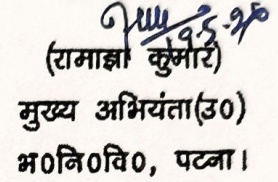 19.5.20
(रामाज्ञा कुमार)
मुख्य अभियंता(उ०)
भ०नि०वि०, पटना।